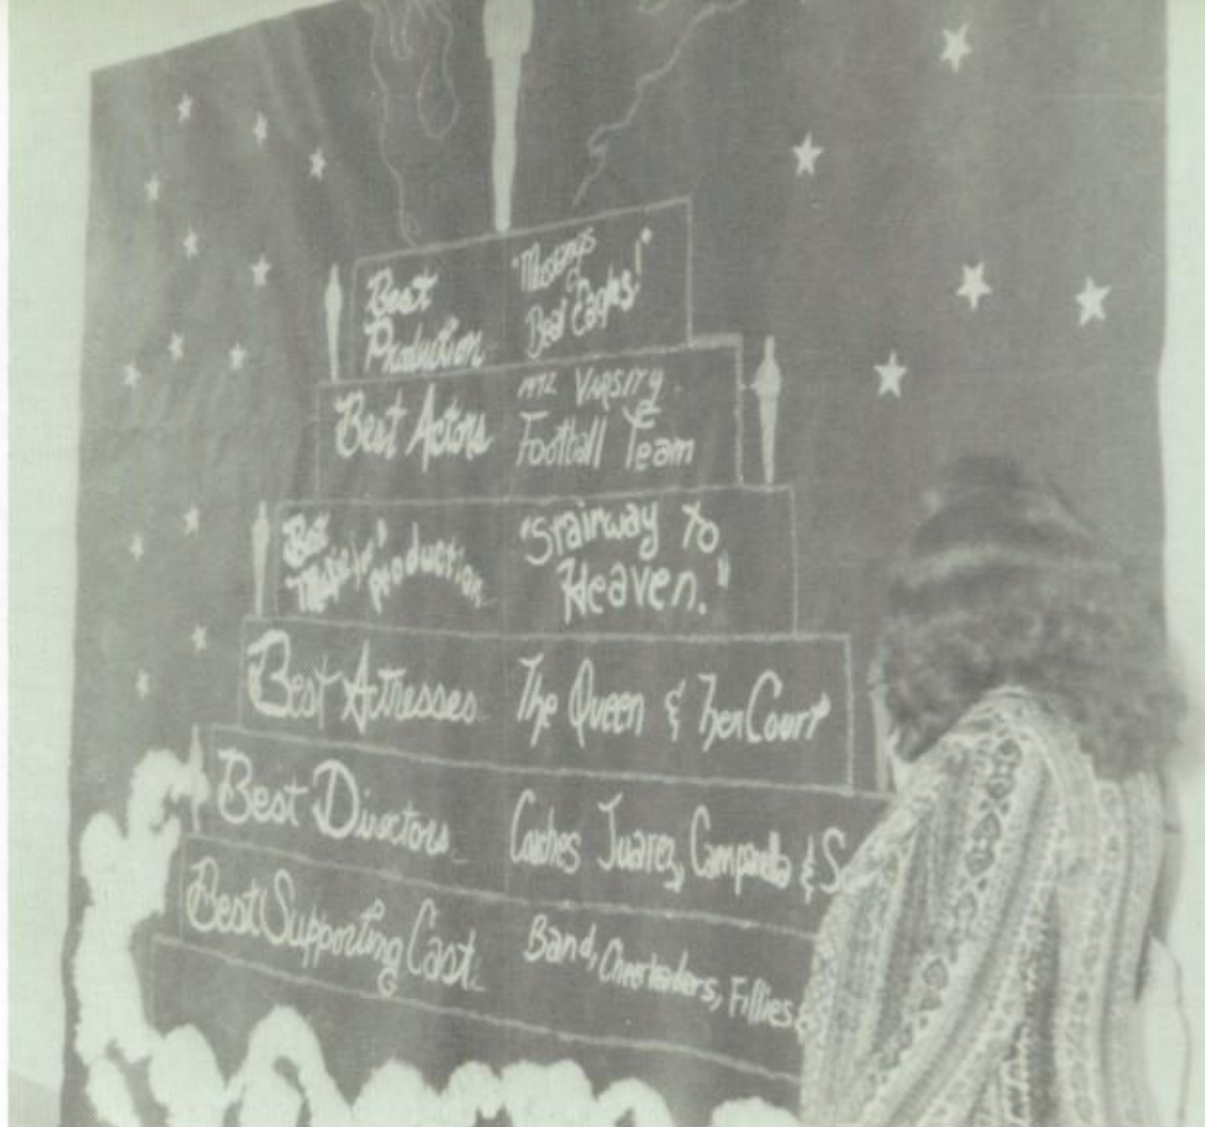 Best
Production
"Mustangs
Beat Eagles!"
Best Actors
Varsity
Football Team
Best
Production
"Stairway to
Heaven."
Best Actresses
The Queen & Her Court
Best Directors
Coaches Juarez, &
Best Supporting Cast
Band, Cheerleaders, Fillies &